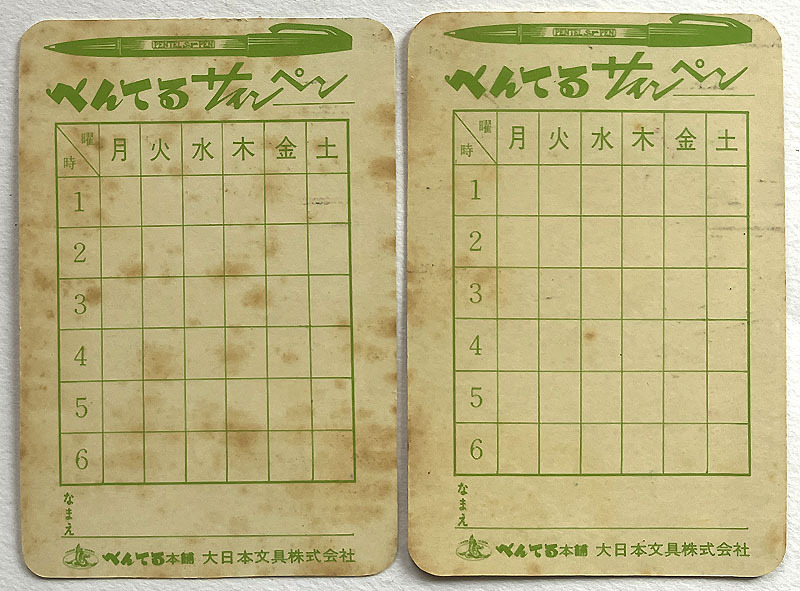 PENTEL Sign PEN
ぺんてるサインペン
曜 時 月 火 水 木 金 土
1
2
3
4
5
6
なまえ
ぺんてる本舗 大日本文具株式会社
PENTEL Sign PEN
ぺんてるサインペン
曜 時 月 火 水 木 金 土
1
2
3
4
5
6
なまえ
ぺんてる本舗 大日本文具株式会社